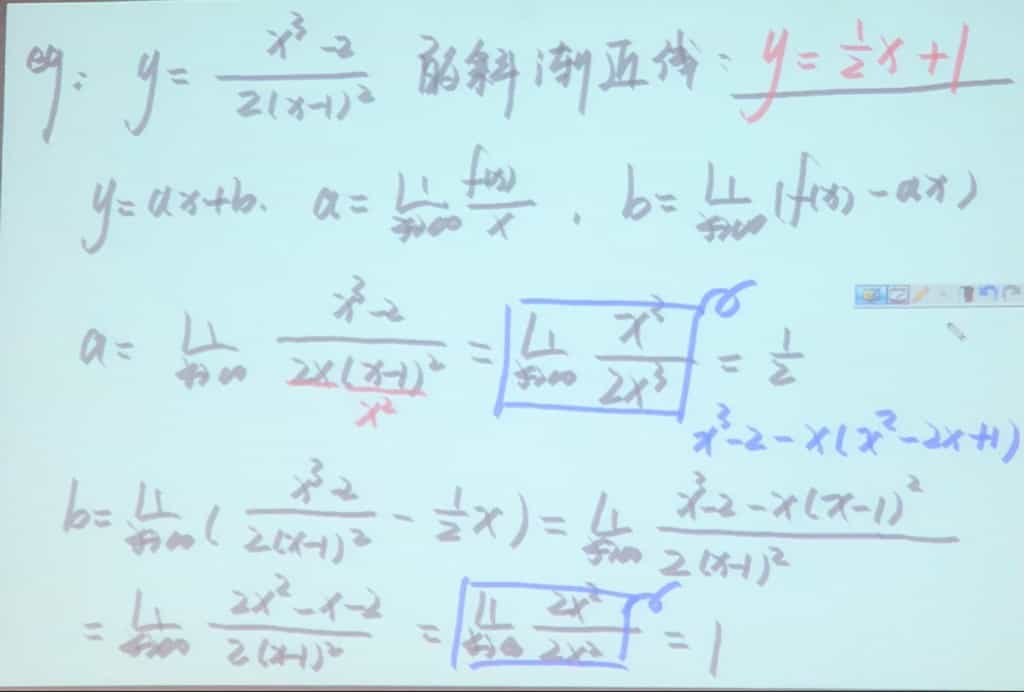 例: y = \frac{x^3-2}{2(x-1)^2} 的斜渐近线: y = \frac{1}{2}x+1
y = ax+b. a = \lim_{x→∞} \frac{f(x)}{x} , b = \lim_{x→∞} (f(x) - ax)
a = \lim_{x→∞} \frac{x^3-2}{2x(x-1)^2} = \lim_{x→∞} \frac{x^3}{2x^3} = \frac{1}{2}
x^2
x^3-2-x(x^2-2x+1)
b = \lim_{x→∞} ( \frac{x^3-2}{2(x-1)^2} - \frac{1}{2}x ) = \lim_{x→∞} \frac{x^3-2-x(x-1)^2}{2(x-1)^2}
= \lim_{x→∞} \frac{2x^2-x-2}{2(x-1)^2} = \lim_{x→∞} \frac{2x^2}{2x^2} = 1